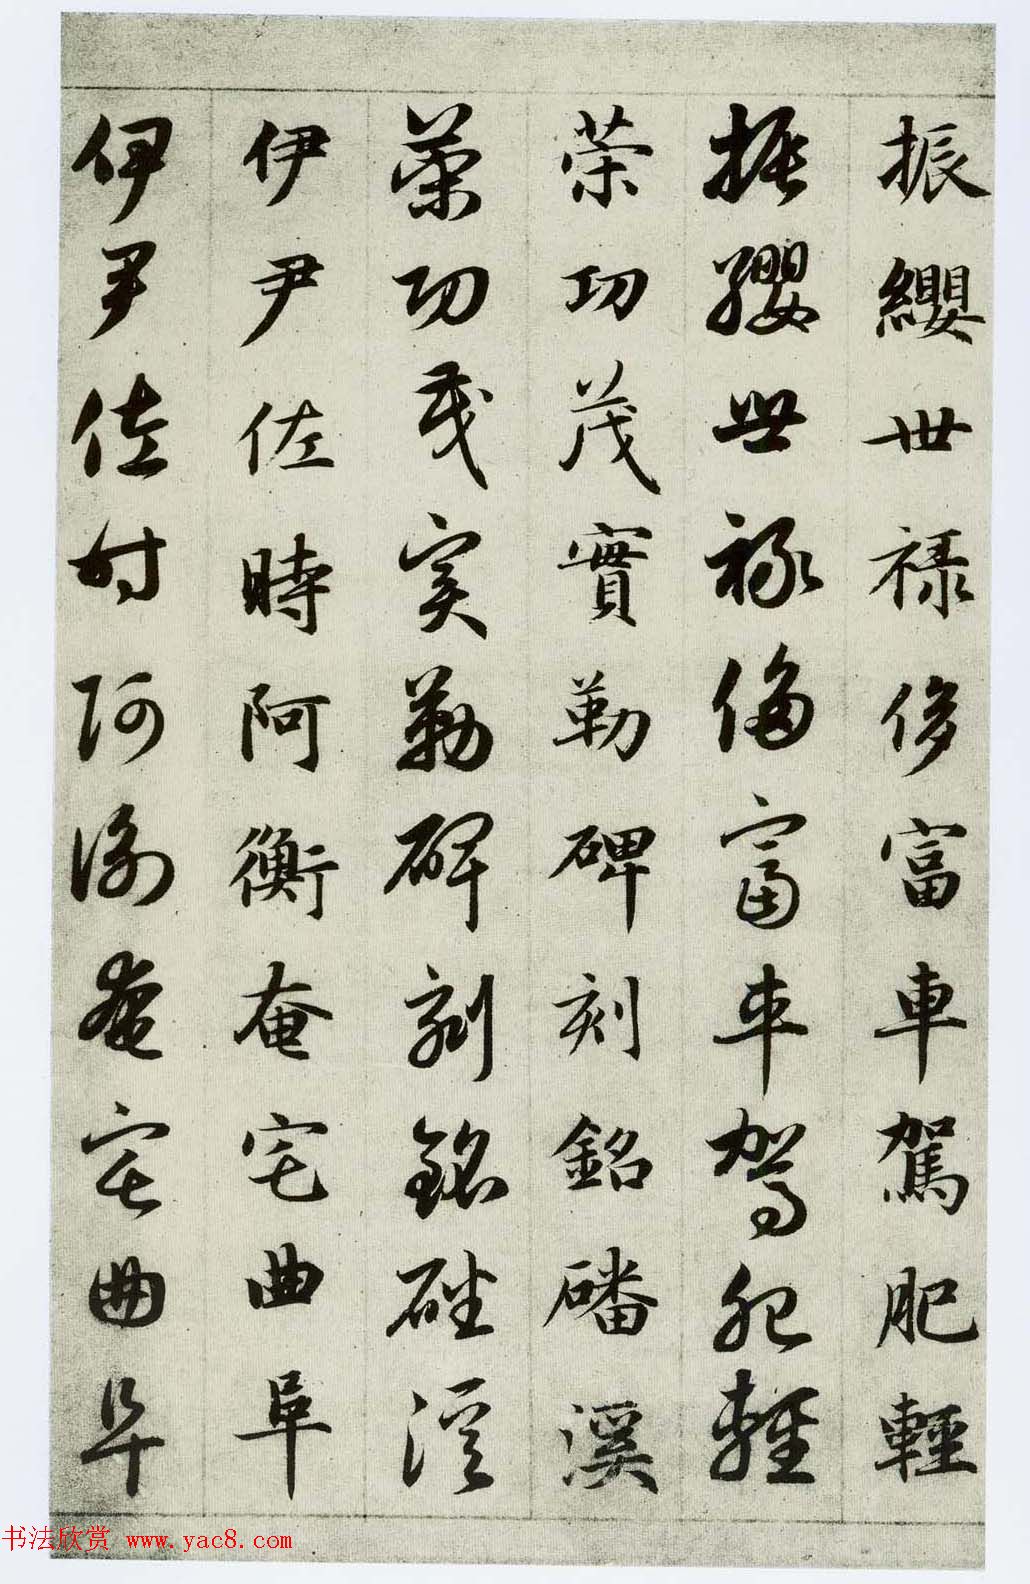 振纓世禄侈富車駕肥輕
振纓世禄侈富車駕肥輕
策功茂實勒碑刻銘磻溪
策功茂實勒碑刻銘磻溪
伊尹佐時阿衡奄宅曲阜
伊尹佐時阿衡奄宅曲阜
书法欣赏 www.yac8.com